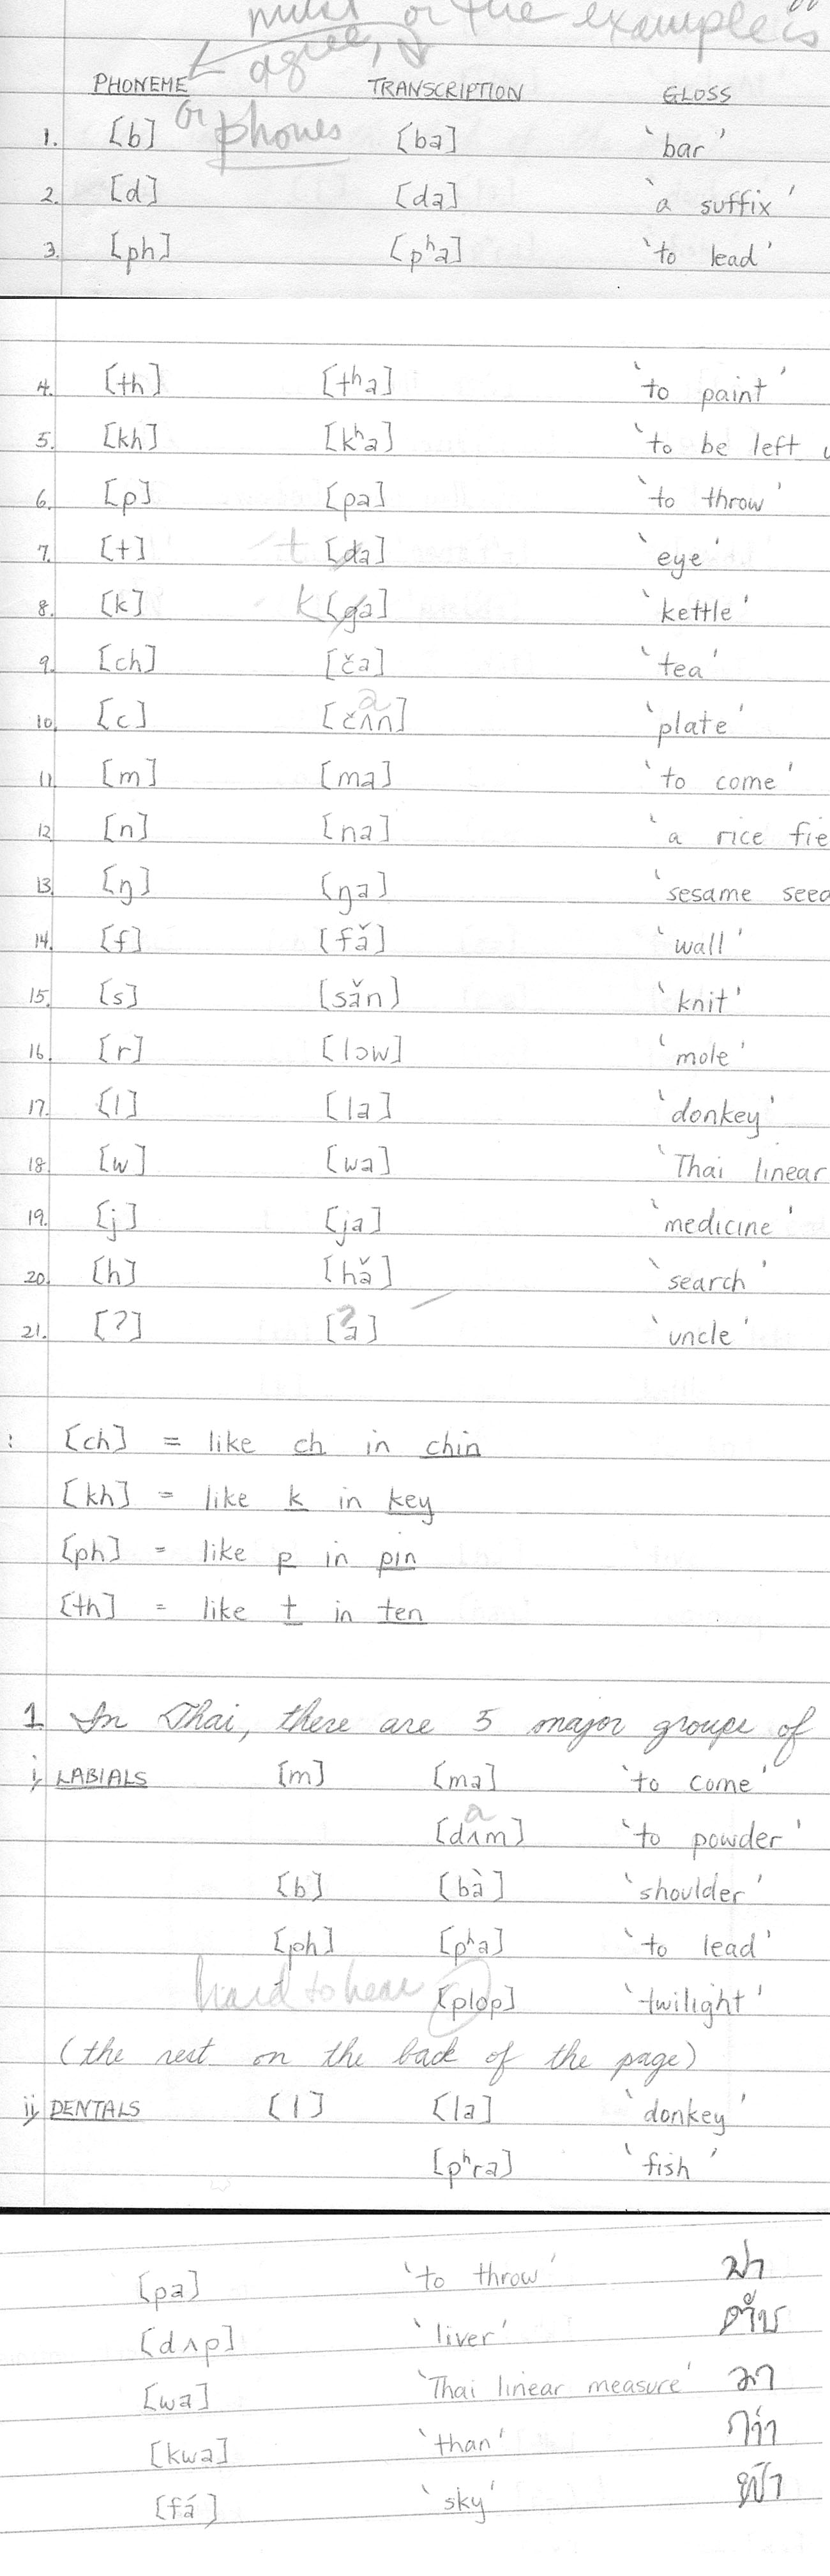 must or the example is
agree,
PHONEME TRANSCRIPTION GLOSS
or phones
1. [b] [ba] 'bar'
2. [d] [da] 'a suffix'
3. [ph] [pʰa] 'to lead'
4. [th] [tʰa] 'to paint'
5. [kh] [kʰa] 'to be left
6. [p] [pa] 'to throw'
7. [t] t [da] 'eye'
8. [k] k [ga] 'kettle'
9. [ch] [ča] 'tea'
10. [c] [čʌn] a 'plate'
11. [m] [ma] 'to come'
12. [n] [na] 'a rice fie
13. [ŋ] [ŋa] 'sesame seed
14. [f] [fǎ] 'wall'
15. [s] [sǎn] 'knit'
16. [r] [lɔw] 'mole'
17. [l] [la] 'donkey'
18. [w] [wa] 'Thai linear
19. [j] [ja] 'medicine'
20. [h] [hǎ] 'search'
21. [?] [ʔa] 'uncle'
: [ch] = like ch in chin
[kh] = like k in key
[ph] = like p in pin
[th] = like t in ten
1 In Thai, there are 5 major groups of
i, LABIALS [m] [ma] 'to come'
[dʌm] a 'to powder'
[b] [bà] 'shoulder'
[ph] [pʰa] 'to lead'
hard to hear [plop] 'twilight'
(the rest on the back of the page)
ii, DENTALS [l] [la] 'donkey'
[pʰra] 'fish'
[pa] 'to throw' ปา
[dʌp] 'liver' ตับ
[wa] 'Thai linear measure' วา
[kwa] 'than' กว่า
[fá] 'sky' ฟ้า